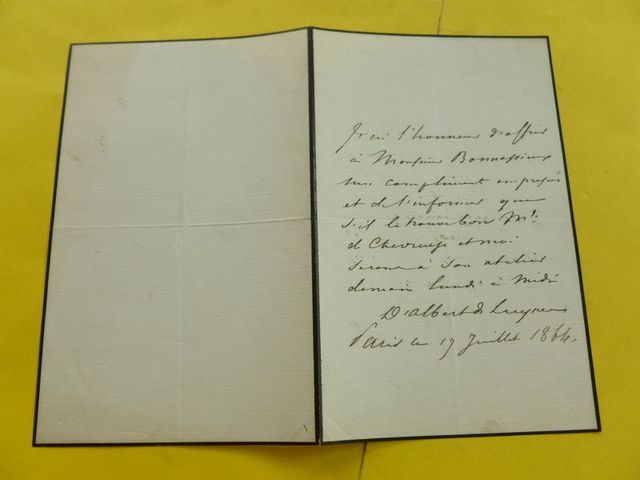 J'ai l'honneur d'offrir
à Monsieur Bonnassieux
mes compliments empressés
et de l'informer que
s'il le trouve bon Mr.
de Chevreuse et moi
serons à son atelier
demain lundi à midi
D'Albert de Luynes
Paris ce 17 Juillet 1864.